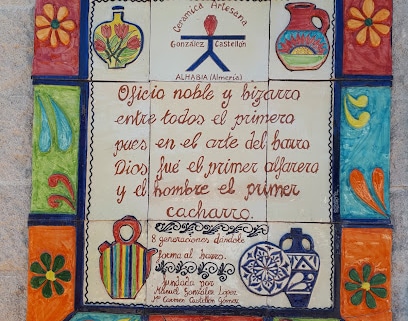 Cerámica Artesana
González Castellón
ALHABIA (Almería)
Oficio noble y bizarro
entre todos el primero
pues en el arte del barro
Dios fué el primer alfarero
y el hombre el primer
cacharro.
8 generaciones dandole
forma al barro.
fundada por
Manuel González López
Mª Carmen Castellón Gómez